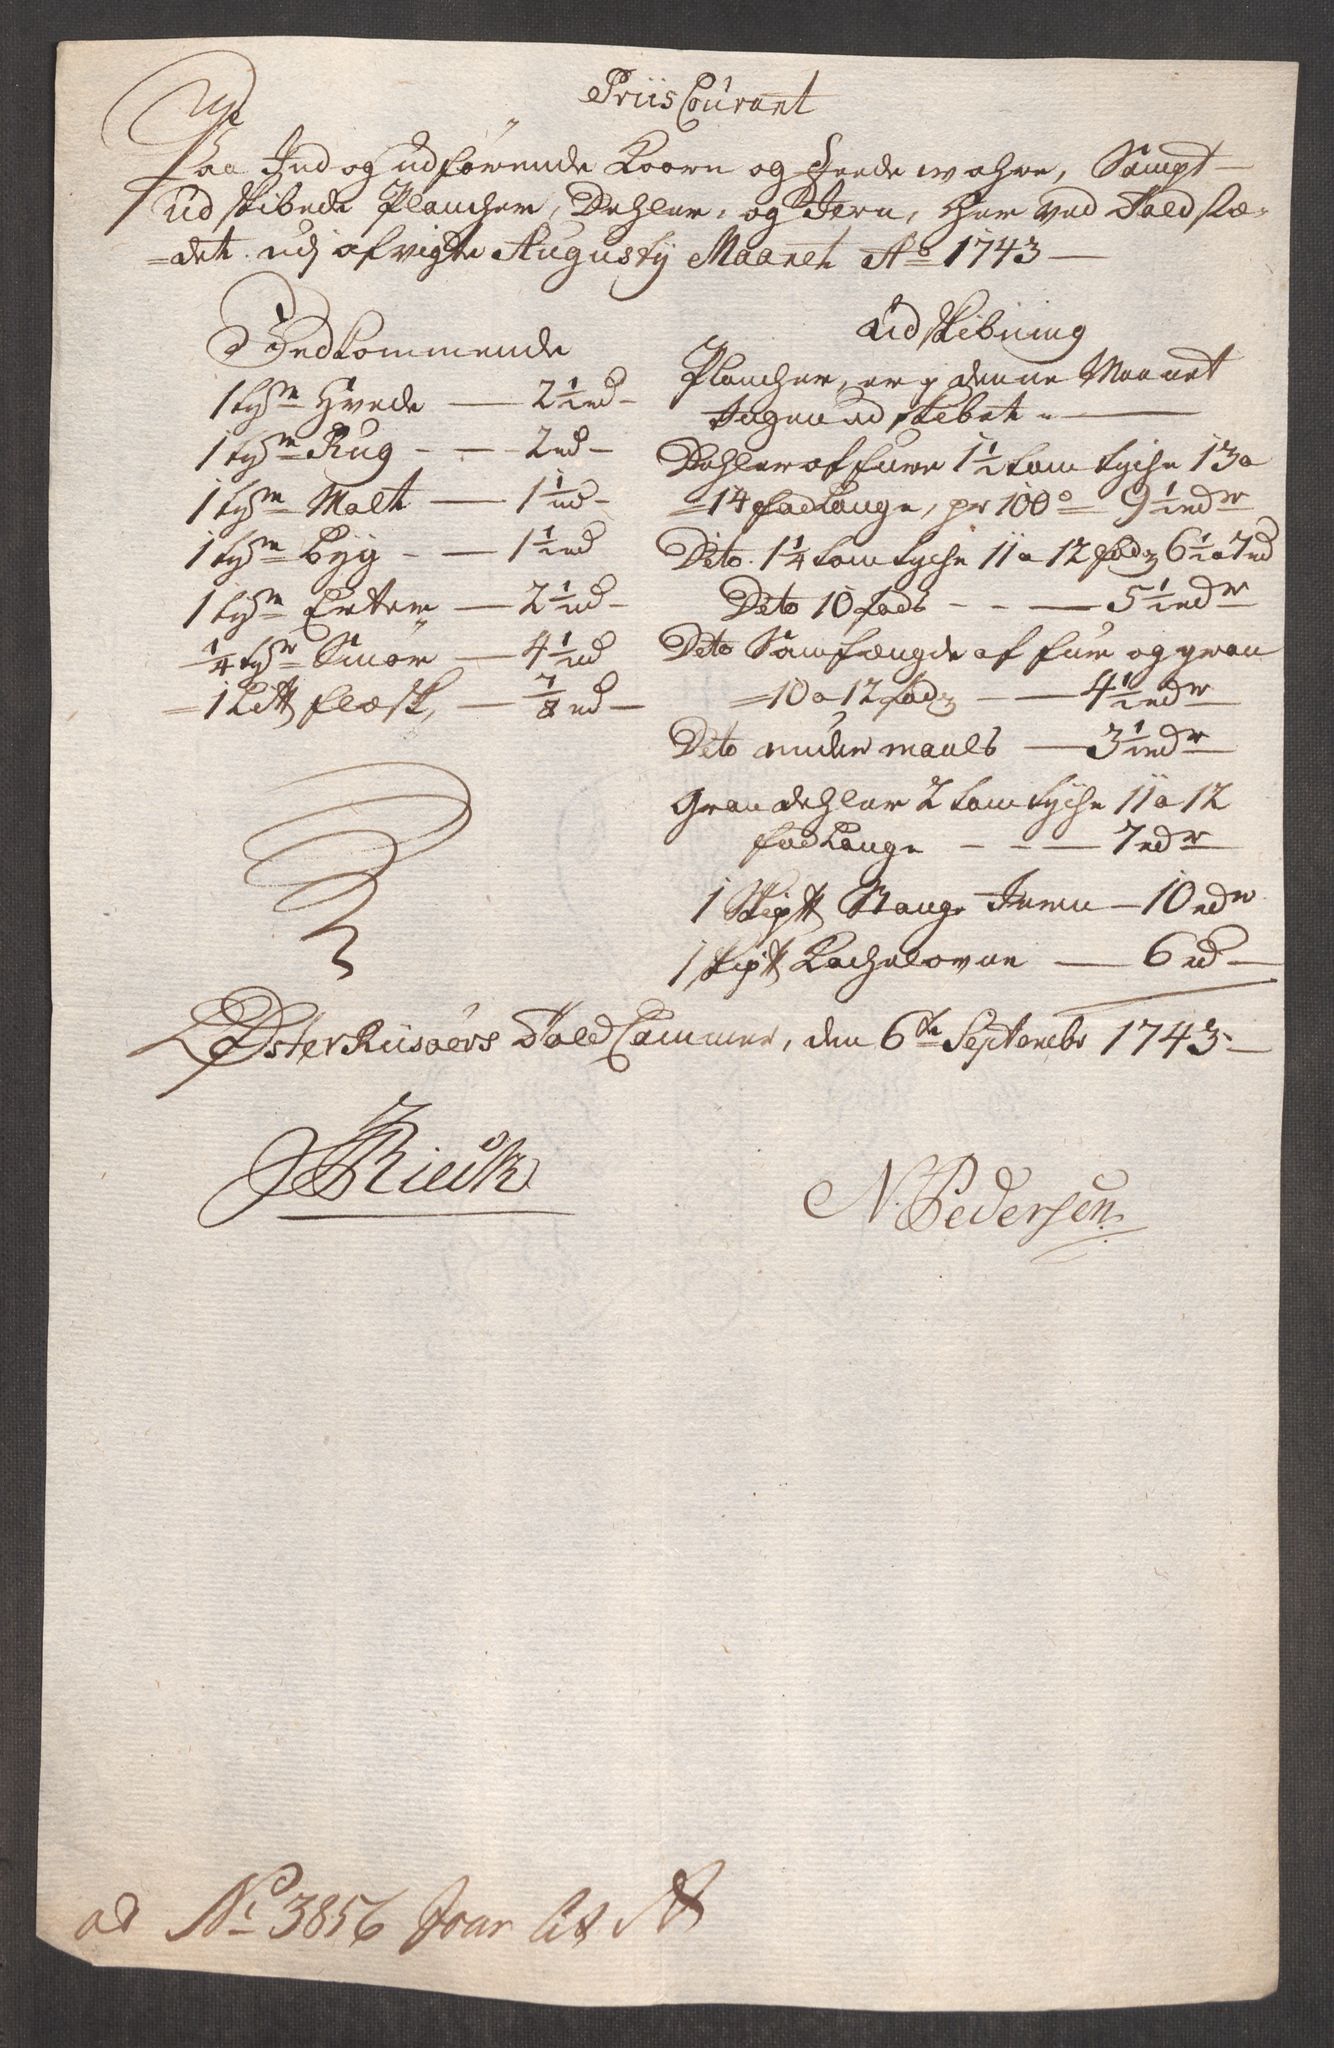 Priis Courant
Paa Ind og udførende Koorn og Feede wahre, Sampt
udskibede Plancher, Dehler, og Jern, her ved Toldstæ-
det udj afvigte Augustij Maanet Ao 1743
Indkommende
1 tøn Hvede — 2 1/2 rd
1 tøn Rug — 2 rd
1 tøn Malt — 1 1/2 rd
1 tøn Byg — 1 1/2 rd
1 tøn Erter — 2 1/2 rd
1/4 tør Smør — 4 1/2 rd
1 Lit flæsk, — 7/8 rd
Udskibning
Plancher, er j denne Maanet
Ingen udskibet
Dehler af fure 1 1/2 tom tyche 13 a
14 fod Lange, pr 100o 9 1/2 rdr
Dito 1 1/4 tom tyche 11 a 12 fod 6 1/2 a 7 rd
Dito 10 fods — 5 1/2 rdr
Dito Samfængde af fure og gran
10 a 12 fod — 4 1/2 rdr
Dito under maals — 3 1/2 rdr
Gran dehler 2 tom tyche 11 a 12
fod Lange — 7 rdr
1 Skip Stange Jern — 10 rdr
1 skip Kachelovne — 6 rd
Østerriisøers Told Cammer, den 6te Septembr 1743
N. Pedersen
ad No 3856 Jour Lit A